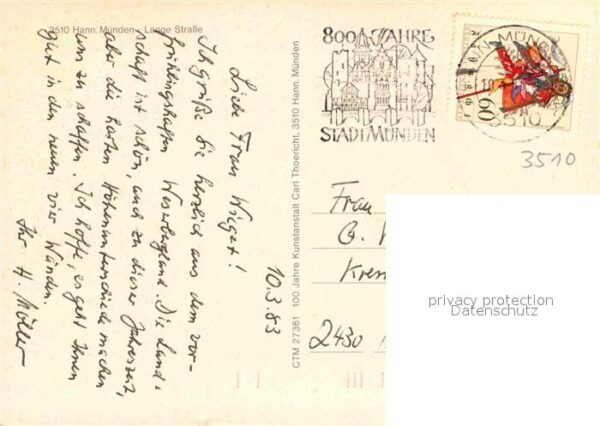 3510 Hann. Münden - Lange Straße
10.3.83
Liebe Frau Wieget!
Ich grüße Sie herzlich aus dem vor-
frühlingshaften Weserbergland. Die Land-
schaft ist schön, auch zu dieser Jahreszeit,
aber die harten Höhenunterschiede machen
uns zu schaffen. Ich hoffe, es geht Ihnen
gut in den neuen vier Wänden.
Ihr H. Möller
CTM 27361 100 Jahre Kunstanstalt Carl Thoericht, 3510 Hann. Münden
800 JAHRE
STADT MÜNDEN
60
3510
3510
Frau
G.
2430
privacy protection
Datenschutz